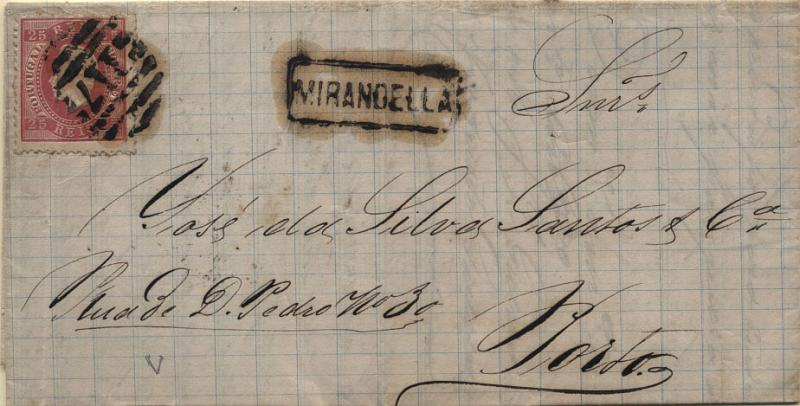 25 25
PORTUGAL
25 REIS 25
MIRANDELLA
Snrs.
José da Silva Santos & Ca
Rua de D. Pedro No 30
Porto.